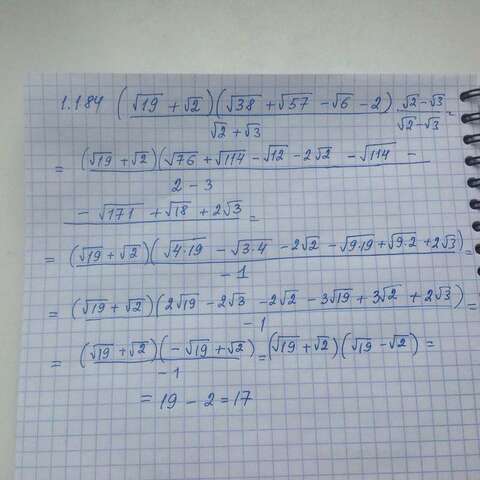 1.184 (√19 + √2)(√38 + √57 - √6 - 2) / (√2 + √3) · (√2 - √3) / (√2 - √3) =
= (√19 + √2)(√76 + √114 - √12 - 2√2 - √114 -
- √171 + √18 + 2√3 / (2 - 3) =
= (√19 + √2)(√4·19 - √3·4 - 2√2 - √9·19 + √9·2 + 2√3) / -1 =
= (√19 + √2)(2√19 - 2√3 - 2√2 - 3√19 + 3√2 + 2√3) / -1 =
= (√19 + √2)(-√19 + √2) / -1 = (√19 + √2)(√19 - √2) =
= 19 - 2 = 17